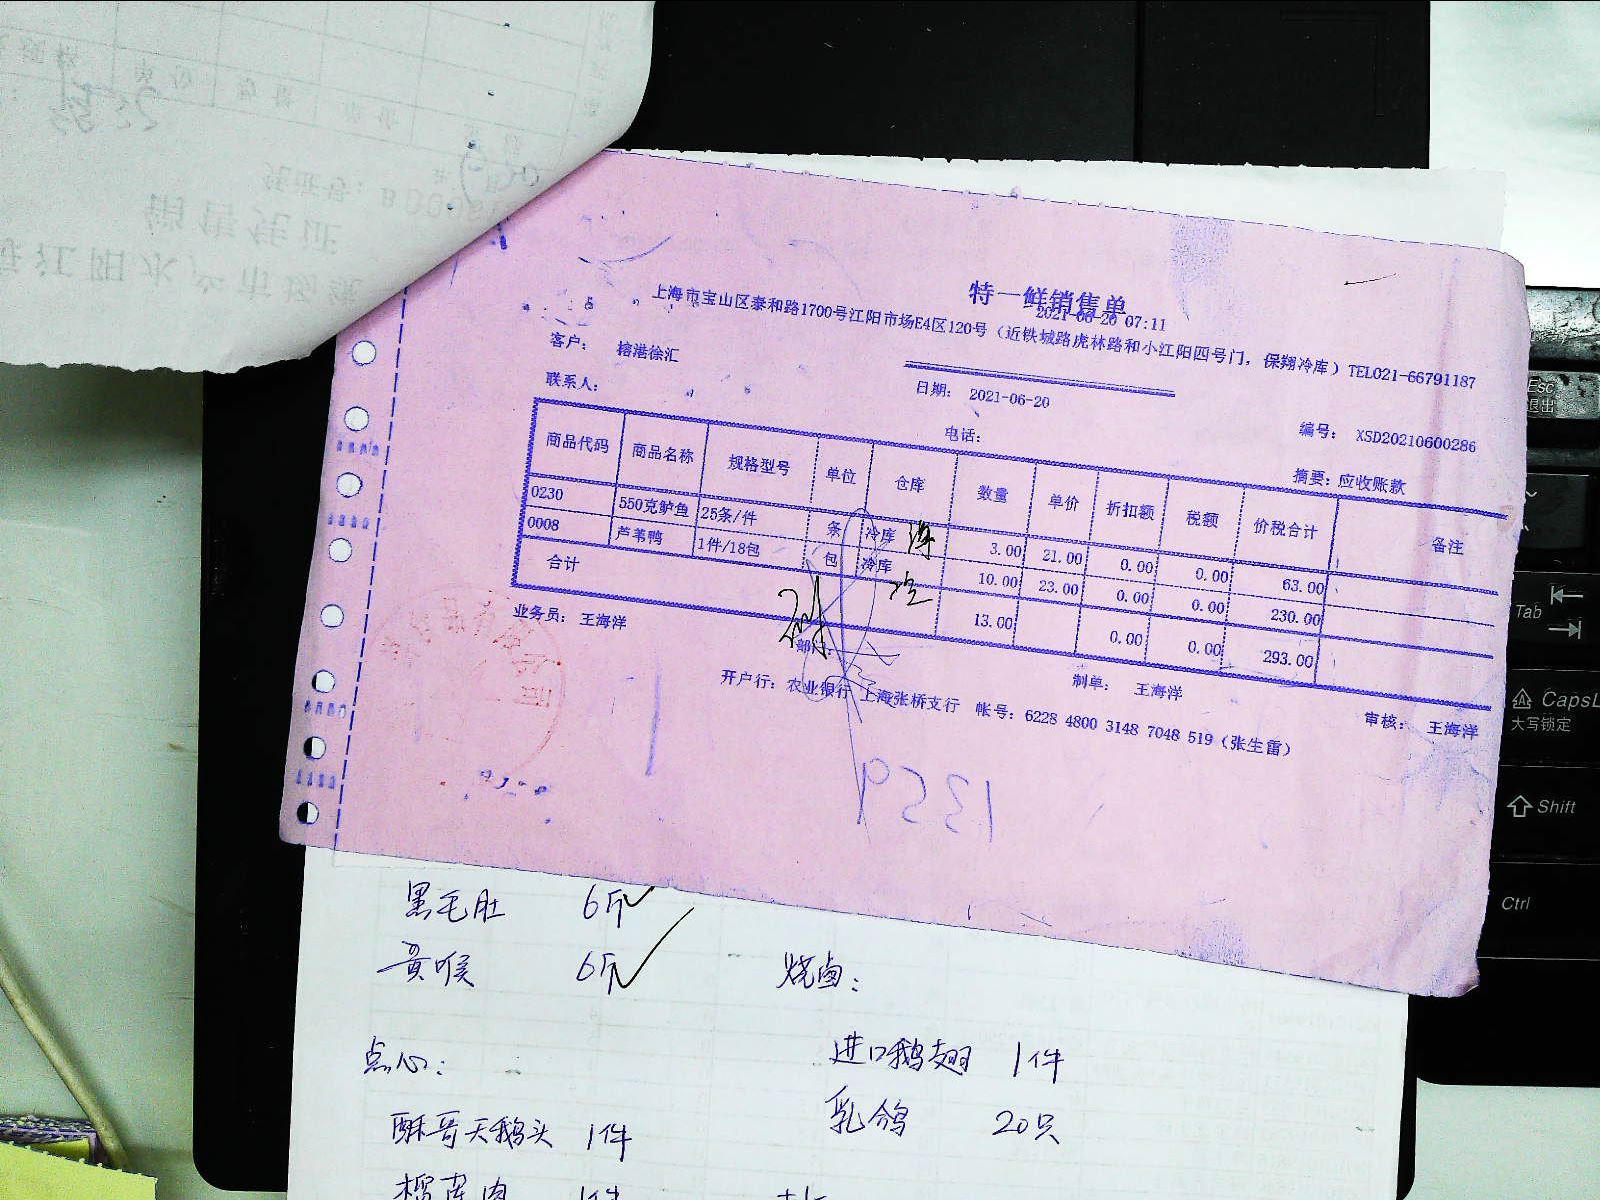 特一鲜销售单
2021-06-20 07:11
上海市宝山区泰和路1700号江阳市场E4区120号（近铁城路虎林路和小江阳四号门，保翔冷库）TEL021-66791187
客户： 榕港徐汇
日期： 2021-06-20
编号： XSD20210600286
联系人：
电话：
摘要：应收账款
商品代码 商品名称 规格型号 单位 仓库 数量 单价 折扣额 税额 价税合计 备注
0230 550克鲈鱼 25条/件 条 冷库 3.00 21.00 0.00 0.00 63.00
0008 芦苇鸭 1件/18包 包 冷库 10.00 23.00 0.00 0.00 230.00
合计 13.00 0.00 0.00 293.00
业务员： 王海洋
部门：
制单： 王海洋
审核： 王海洋
开户行：农业银行 上海张桥支行 帐号：6228 4800 3148 7048 519（张生雷）
黑毛肚 6斤
黄喉 6斤
烧卤：
点心：
进口鹅翅 1件
乳鸽 20只
酥哥天鹅头 1件
榴莲肉 1件
Esc
退出
Tab
CapsL
大写锁定
Shift
Ctrl